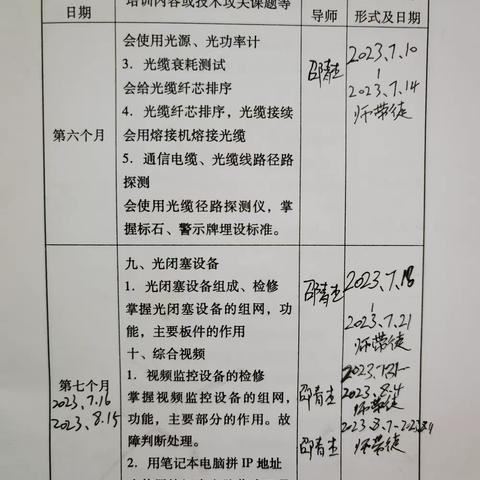 日期
培训内容或技术攻关课题等
导师
形式及日期
第六个月
会使用光源、光功率计
3．光缆衰耗测试
会给光缆纤芯排序
4．光缆纤芯排序，光缆接续
会用熔接机熔接光缆
5．通信电缆、光缆线路径路
探测
会使用光缆径路探测仪，掌
握标石、警示牌埋设标准。
邵青杰
2023、7、10
2023、7、14
师带徒
第七个月
2023、7.16
2023、8.15
九、光闭塞设备
1．光闭塞设备组成、检修
掌握光闭塞设备的组网，功
能，主要板件的作用
十、综合视频
1．视频监控设备的检修
掌握视频监控设备的组网，
功能，主要部分的作用。故
障判断处理。
2．用笔记本电脑拼 IP 地址
邵青杰
邵青杰
邵青杰
2023、7、18
2023、7、21
师带徒
2023、8、4
师带徒
师带徒